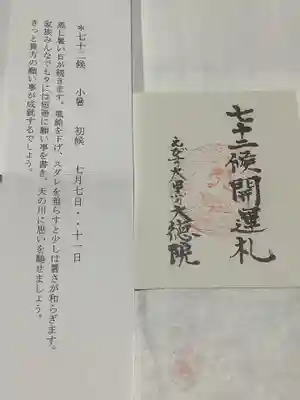 ＊七十二候　小暑　初候　七月七日・・十一日
蒸し暑い日が続きます。風鈴を下げ、スダレを垂らすと少しは暑さが和らぎます。
家族みんなで七夕には短冊に願い事を書き、天の川に思いを馳せましょう。
きっと貴方の願い事が成就するでしょう。
七十二候開運札
大徳院